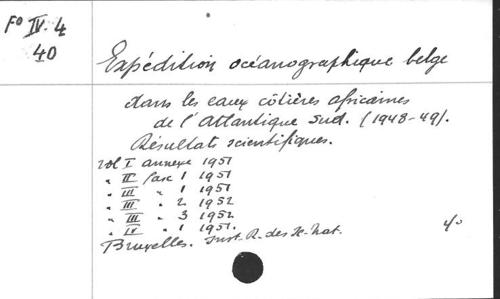 Fo IV. 4
40
Expédition océanographique belge
dans les eaux côtières africaines
de l'Atlantique Sud. (1948-49).
Résultats scientifiques.
vol I annexe 1951
" II fasc 1 1951
" III " 1 1951
" III " 2 1952
" III " 3 1952
" IV " 1 1951.
Bruxelles. Inst. R. des Sc. Nat.